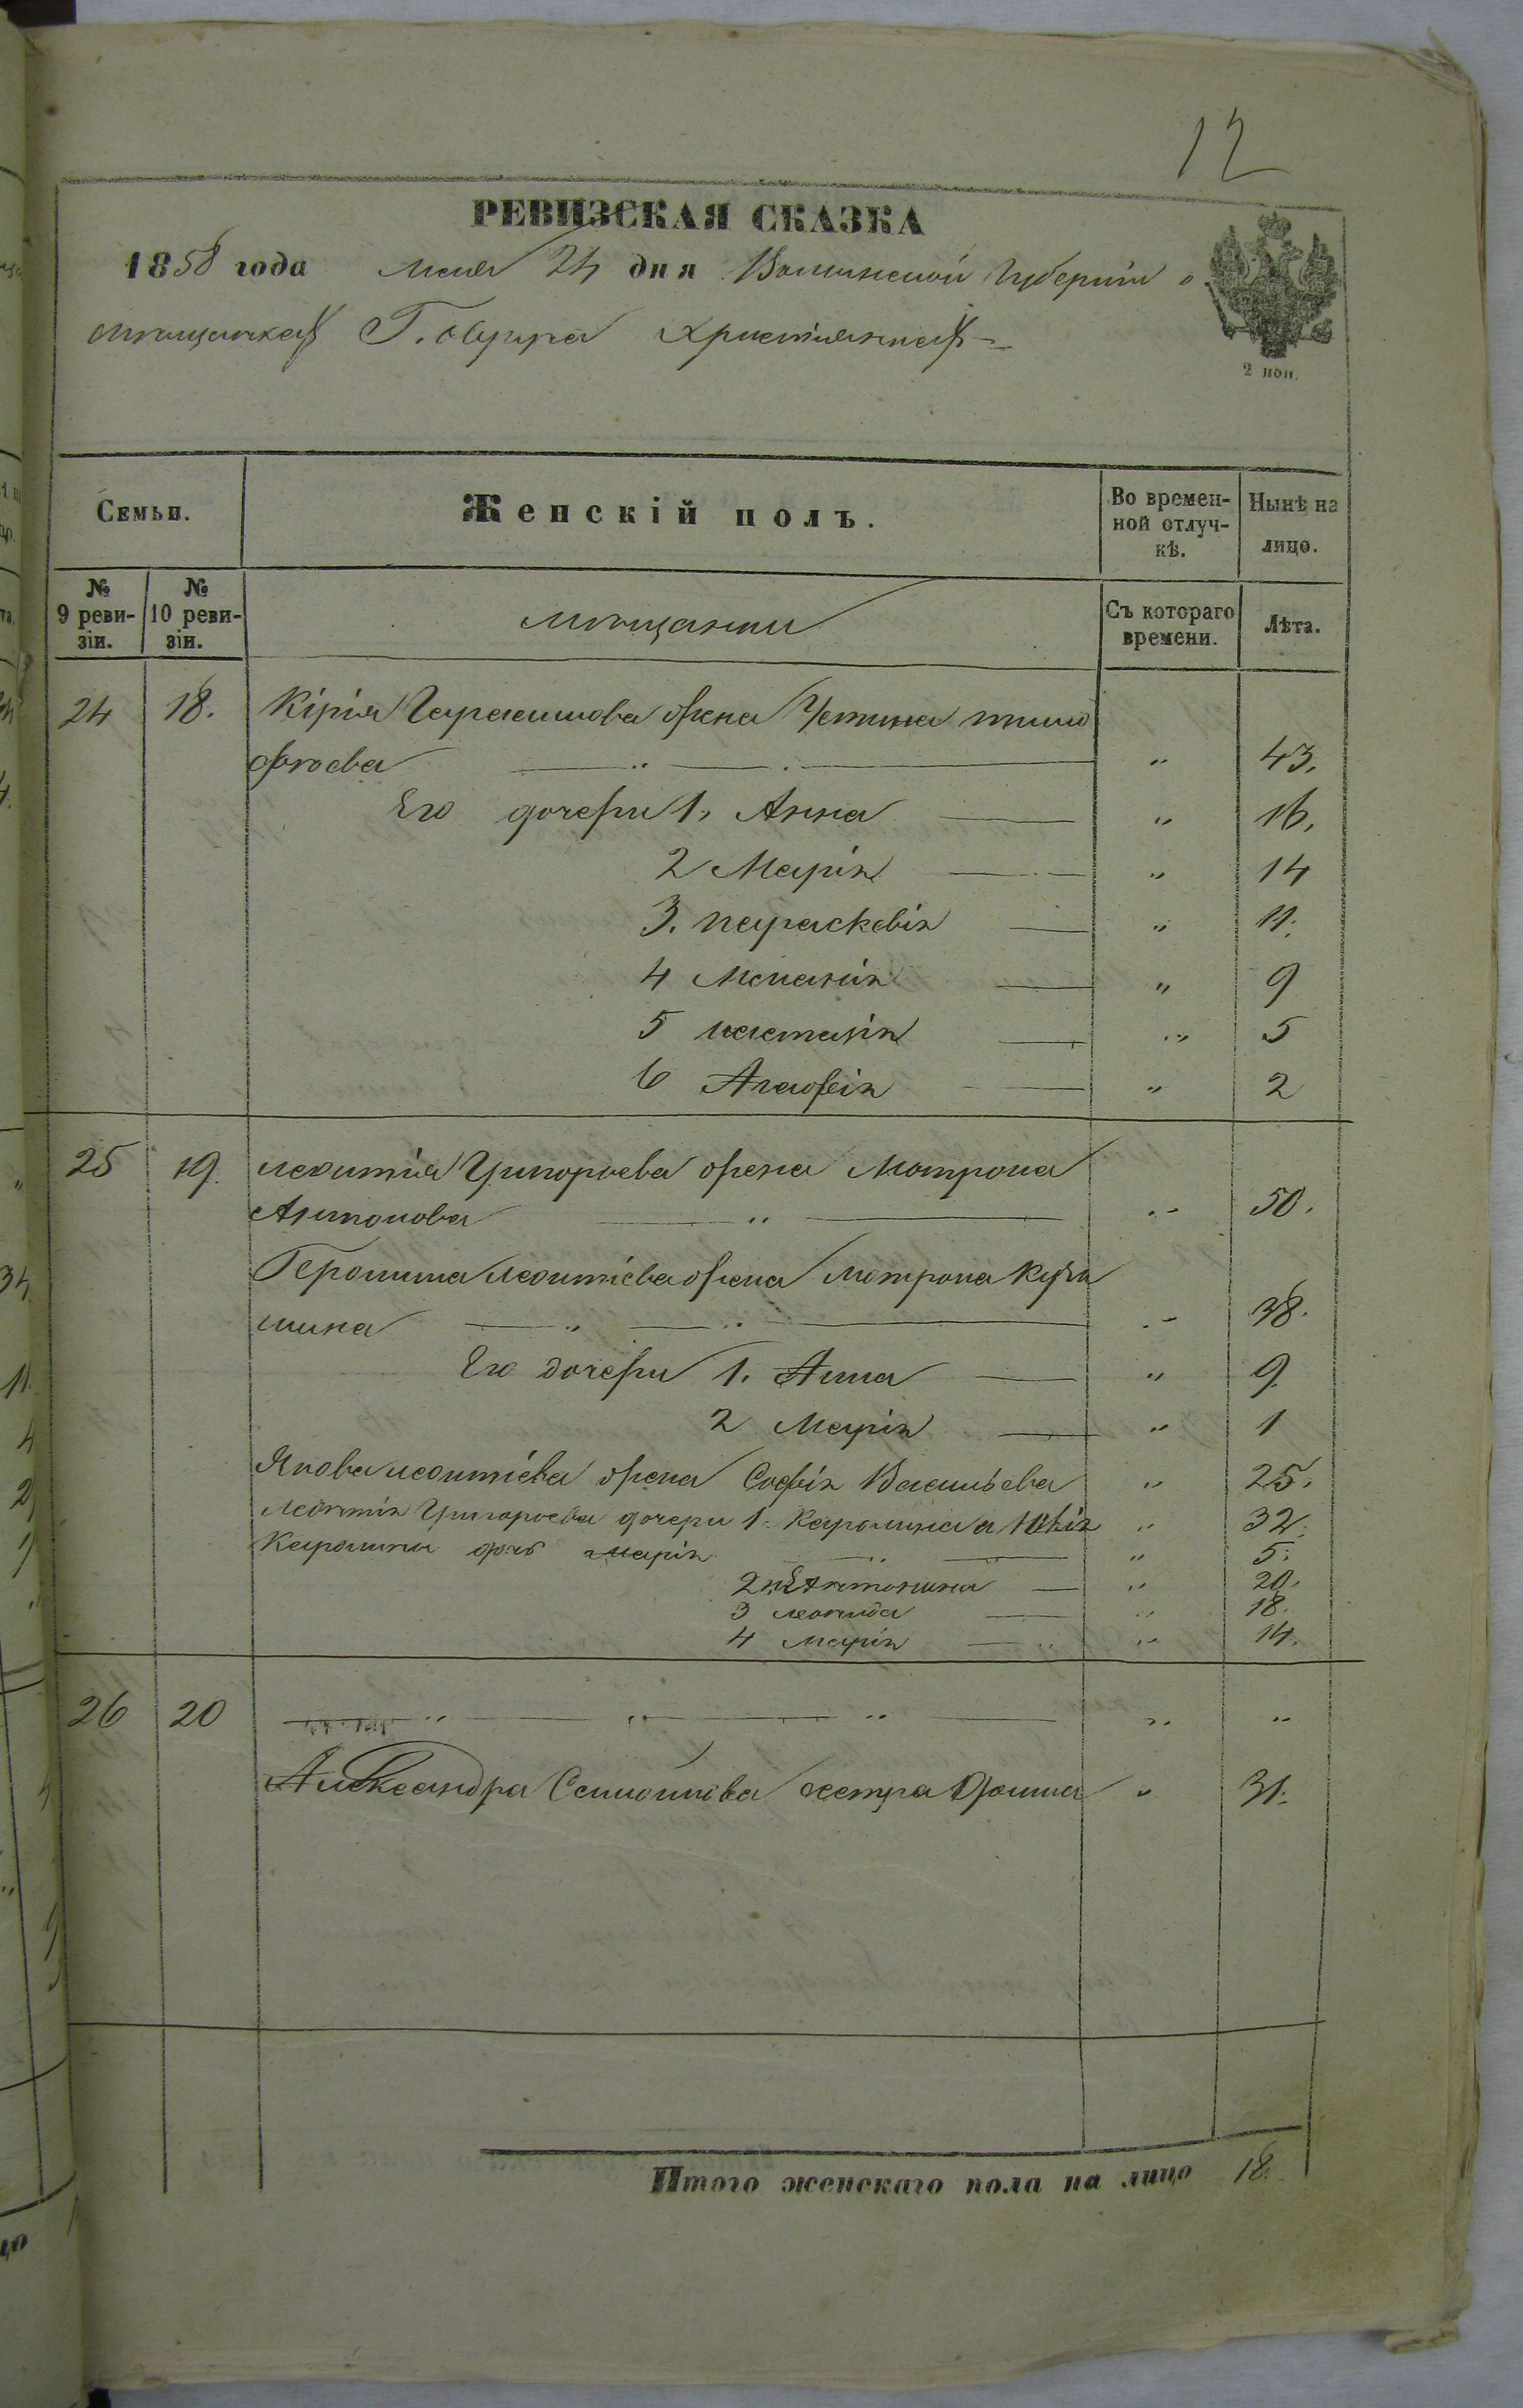 12
РЕВИЗСКАЯ СКАЗКА
1858 года Мая 24 дня Волынской Губернiи о
мѣщанахъ Г. Овруча Христiанахъ
2 коп.
Семьи.
Женскiй полъ.
Во времен-
ной отлуч-
кѣ.
Нынѣ на
лицо.
№
9 реви-
зiи.
№
10 реви-
зiи.
мѣщанки
Съ котораго
времени.
Лѣта.
24 18. Кiрiя Герасимова жена Устина тимо
фѣева " 43.
Его дочери 1. Анна " 16.
2 Марiя " 14
3. параскевiя " 11.
4 Меланiя " 9
5 настазiя " 5
6 Агафiя " 2
25 19. леонтiя Григорьева жена Мотрона
Антонова " 50.
Геронима леонтiева жена Мотрона
шина " 38.
Его дочери 1. Анна " 9
2 Марiя " 1
Якова леонтiева жена Софiя Васильева " 25.
Леонтiя Григорьева дочери 1. Каролина а " 32.
Каролины дочь марiя " 5.
2 Антонина " 20.
3 леонида " 18.
4 Марiя " 14.
26 20 " " " " "
Александра Семионова сестра " 31.
Итого женскаго пола на лицо 18.